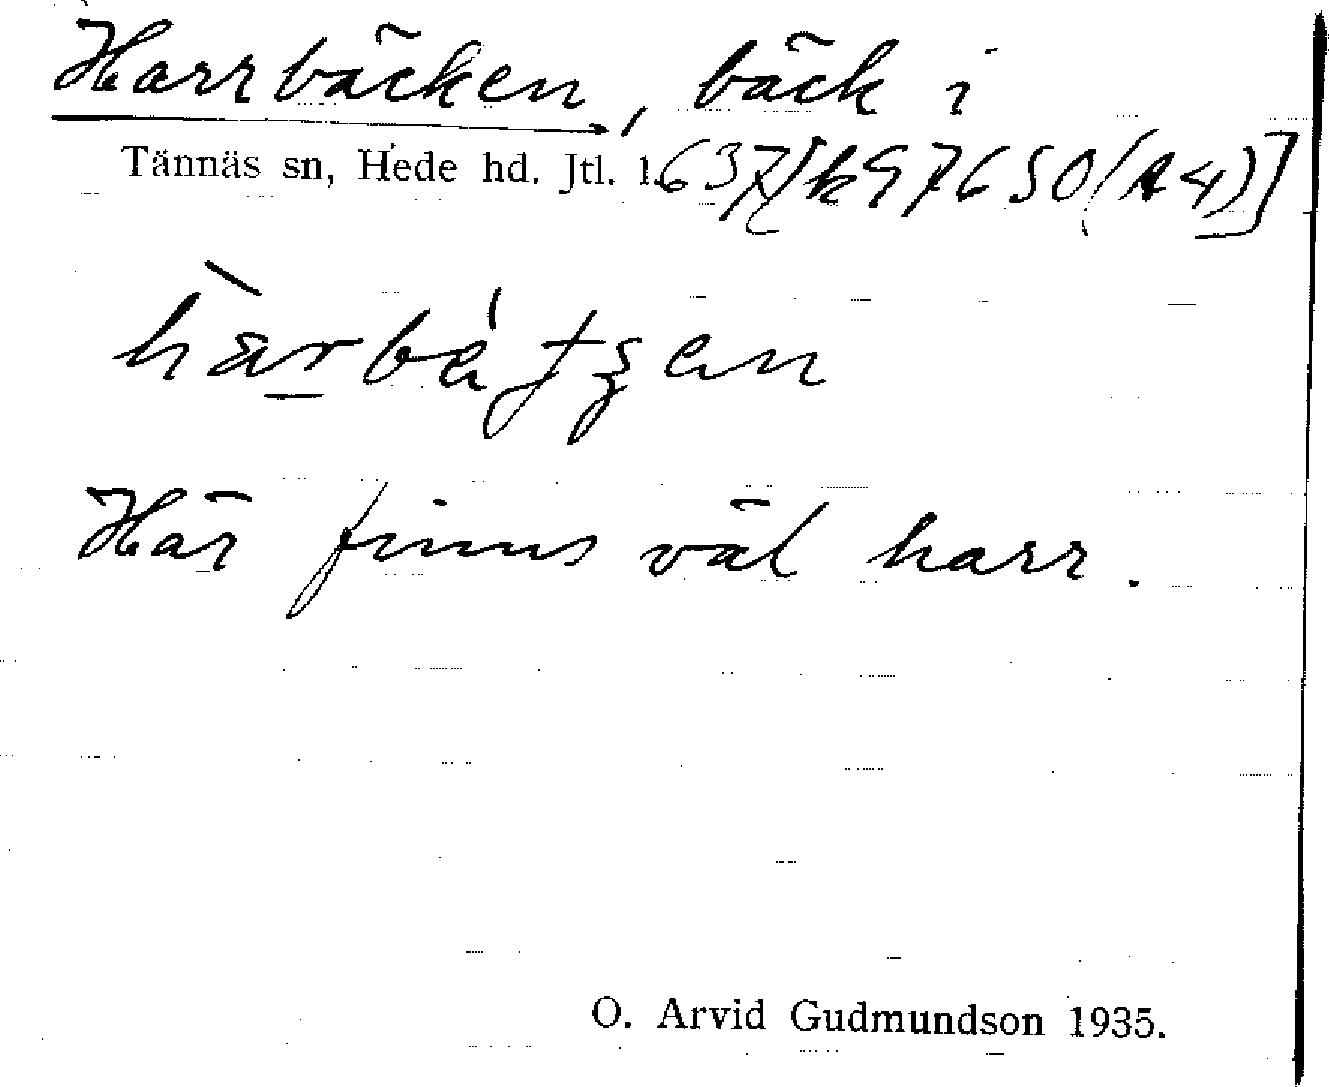 Harrbäcken, bäck i
Tännäs sn, Hede hd. Jtl. l. 637/k97650(A4)]
Här finns väl harr.
O. Arvid Gudmundson 1935.